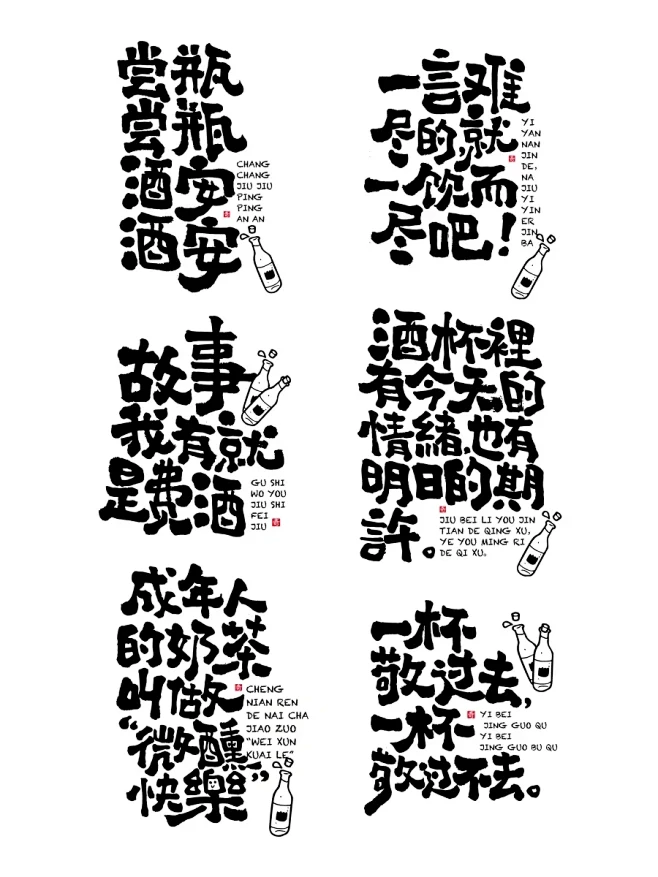 尝尝酒酒
瓶瓶安安
CHANG
CHANG
JIU JIU
PING
PING
AN AN
一言难
尽的,就
一饮而
尽吧!
YI
YAN
NAN
JIN
DE,
NA
JIU
YI
YIN
ER
JIN
BA
故事
我有就
是费酒
GU SHI
WO YOU
JIU SHI
FEI
JIU
酒杯裡
有今天的
情緒,也有
明日的期
許。
JIU BEI LI YOU JIN
TIAN DE QING XU,
YE YOU MING RI
DE QI XU。
成年人
的奶茶
叫做
“微醺
快樂”
CHENG
NIAN REN
DE NAI CHA
JIAO ZUO
“WEI XUN
KUAI LE”
一杯
敬过去,
一杯
敬过不去。
YI BEI
JING GUO QU
YI BEI
JING GUO BU QU